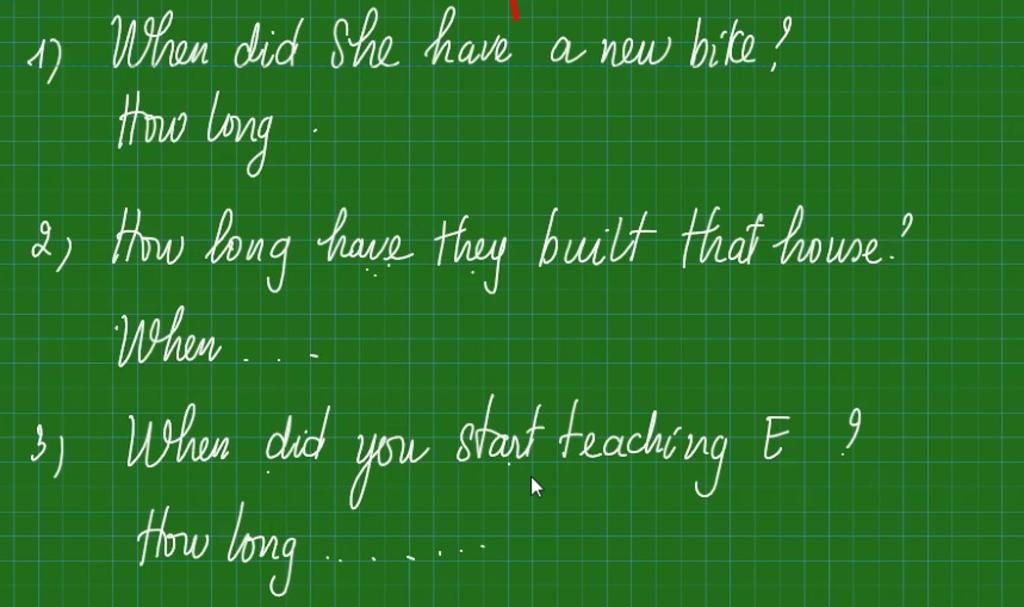 1) When did She have a new bike?
How long .
2) How long have they built that house?
When ....
3) When did you start teaching E ?
How long .......